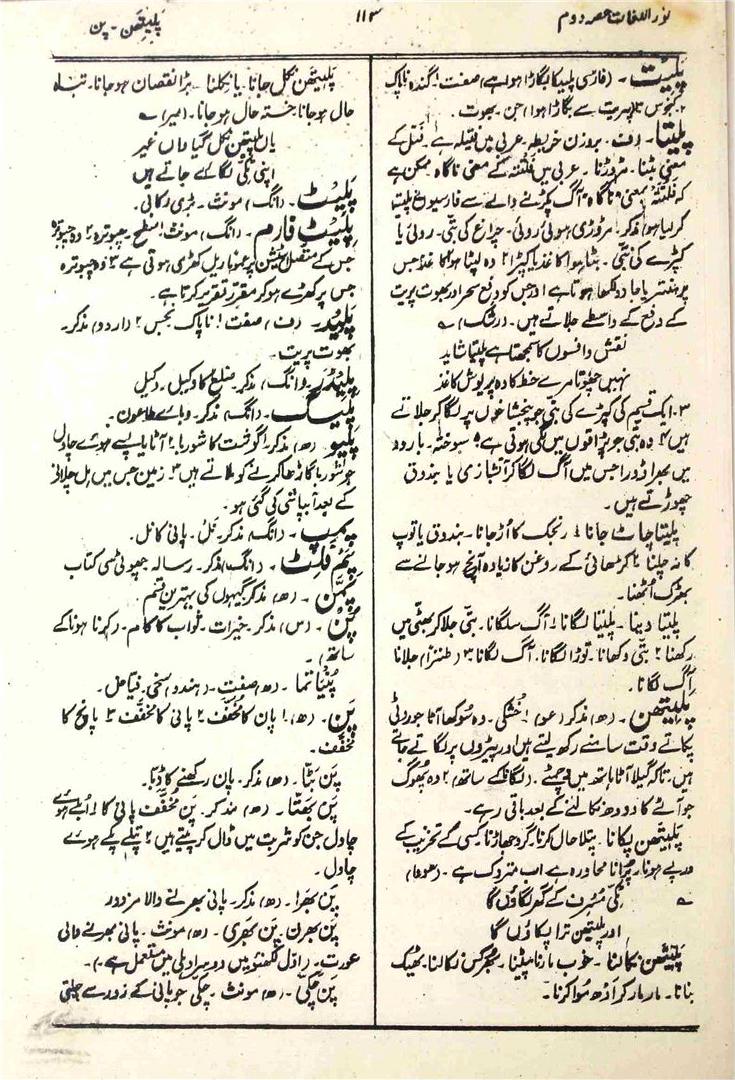 نور اللغات حصہ دوم
۱۱۳
پلیتھن۔ پن
پَلِیْت۔ (فارسی پلید کا بگاڑا ہوا ہے) صفت ۱ گندہ ناپاک
۲ کنجوس ۳ (پریت سے بگاڑا ہوا) جن۔ بھوت۔
پَلِیْتا۔ (ف۔ بروزن خریطہ۔ عربی میں فتیلہ ہے۔ فتل کے
معنی بٹنا۔ مڑوڑنا۔ عربی میں فلتتہ کے معنی ناگاہ ممکن ہے
کہ فلتتہ بمعنی "ناگاہ" آگ پکڑنے والے سے فارسیوں نے پلیتا
کر لیا ہو) مذکر۔ مروڑی ہوئی روئی۔ چراغ کی بتّی۔ روئی یا
کپڑے کی بتّی۔ بٹا ہوا کاغذ یا کپڑا ۲ وہ لپٹا ہوا کاغذ جس
پر منتر یا جادو لکھا ہوتا ہے اور جس کو دفع سحر اور بھوت پریت
کے دفع کے واسطے جلاتے ہیں۔ (رشک) ؎
نقش و افسوں کا سمجھتا ہے پلیتا شاید
نہیں چھوتا مرے خط کا وہ پریوش کاغذ
۳۔ ایک قسم کی کپڑے کی بتّی جو پنجشاخوں پر لگا کر جلاتے
ہیں ۴ وہ بتی جو پڑاقوں میں لگی ہوتی ہے ۵ سوختہ۔ بارود
میں بھرا ڈورا جس میں آگ لگا کر آتشبازی یا بندوق
چھوڑتے ہیں۔
پلیتا چاٹ جانا ۱ رنجک کا اُڑ جانا۔ بندوق یا توپ
کا نہ چلنا ۲ کڑھائی کے روغن کا زیادہ آنچ ہو جانے سے
بھڑک اُٹھنا۔
پلیتا دینا۔ پلیتا لگانا ۱ آگ سلگانا۔ بتّی جلا کر بھٹی میں
رکھنا ۲ بتّی دکھانا۔ توڑا لگانا۔ آگ لگانا۔ ۳ (طنزاً) جلانا
آگ لگانا۔
پَلِیتھَن۔ (ھ) مذکر (عو) ۱ خُشکی۔ وہ سُوکھا آٹا جو روٹی
پکاتے وقت سامنے رکھ لیتے ہیں اور پیڑوں پر لگاتے جاتے
ہیں۔ تاکہ گیلا آٹا ہاتھ میں نہ چمٹے۔ (لگانا کے ساتھ) ۲ وہ پھوگ
جو آٹے کا دودھ نکالنے کے بعد باقی رہے۔
پلیتھن پکانا۔ پتلا حال کرنا۔ گرد جھاڑنا۔ کسی کے تخریب کے
درپے ہونا۔ پُرانا محاورہ ہے اب متروک ہے۔ (سودا)
؎ نُکّی منّھ کے گھر لگاؤں گا
اور پلیتھن ترا پکاؤں گا
پلیتھن نکالنا۔ خوب مارنا پیٹنا۔ بُھرکس نکالنا۔ ٹھیک
بنانا۔ مار مار کر ادھ مُوا کرنا۔
پلیتھن نکل جانا۔ یا نکلنا۔ بڑا نقصان ہو جانا۔ تباہ
حال ہو جانا۔ خستہ حال ہو جانا۔ (میر) ؎
یاں پلیتھن نکل گیا واں غیر
اپنی ٹکّی لگائے جاتے ہیں
پَلِیْٹ۔ (انگ) مونث۔ بڑی رکابی۔
پلیٹ فارم۔ (انگ) مونث ۱ سطح۔ چبوترہ ۲ وہ چبوترہ
جس کے متصل اسٹیشن پر عموماً ریل کھڑی ہوتی ہے ۳ وہ چبوترہ
جس پر کھڑے ہو کر مقرر تقریر کرتا ہے۔
پَلِیْد۔ (ف) صفت ۱ ناپاک۔ نجس ۲ (اردو) مذکر۔
بھوت پریت۔
پلیڈر۔ (انگ) مذکر۔ ضلع کا وکیل۔ وکیل
پلیگ۔ (انگ) مذکر۔ وبائے طاعون۔
پلیو۔ (ھ) مذکر ۱ گوشت کا شوربا ۲ آٹا یا پسے ہوئے چاول
جو شوربا گاڑھا کرنے کو ملاتے ہیں ۳ زمین جس میں ہل چلانے
کے بعد آبپاشی کی گئی ہو۔
پمپ۔ (انگ) مذکر۔ نل۔ پانی کا نل۔
پَمفلٹ۔ (انگ) مذکر۔ رسالہ چھوٹی سی کتاب
پَمَّن۔ (ھ) مذکر گیہوں کی بہترین قسم۔
پُن۔ (س) مذکر۔ خیرات۔ ثواب کا کام۔ (کرنا ہونا کے
ساتھ)۔
پُنیاتما۔ (ھ) صفت۔ (ہندو) سخی۔ فیاض۔
پَن۔ (ھ) ۱ پان کا مُخفّف ۲ پانی کا مخفّف ۳ پانچ کا
مُخفّف۔
پَن بَٹّا۔ (ھ) مذکر۔ پان رکھنے کا ڈبّا۔
پَن بَھتّا۔ (ھ) مذکر۔ پن مُخفّف پانی کا ۱ اُبلے ہوئے
چاول جن کو شربت میں ڈال کر پیتے ہیں ۲ پتلے پکے ہوئے
چاول۔
پَن بھَرا۔ (ھ) مذکر۔ پانی بھرنے والا مزدور
پَن بھرن۔ پَن بھَری۔ (ھ) مونث۔ پانی بھرنے والی
عورت۔ (اوّل لکھنؤ میں دوسرا دہلی میں مستعمل ہے۔)
پَن چَکّی۔ (ھ) مونث۔ چکی جو پانی کے زور سے چلتی